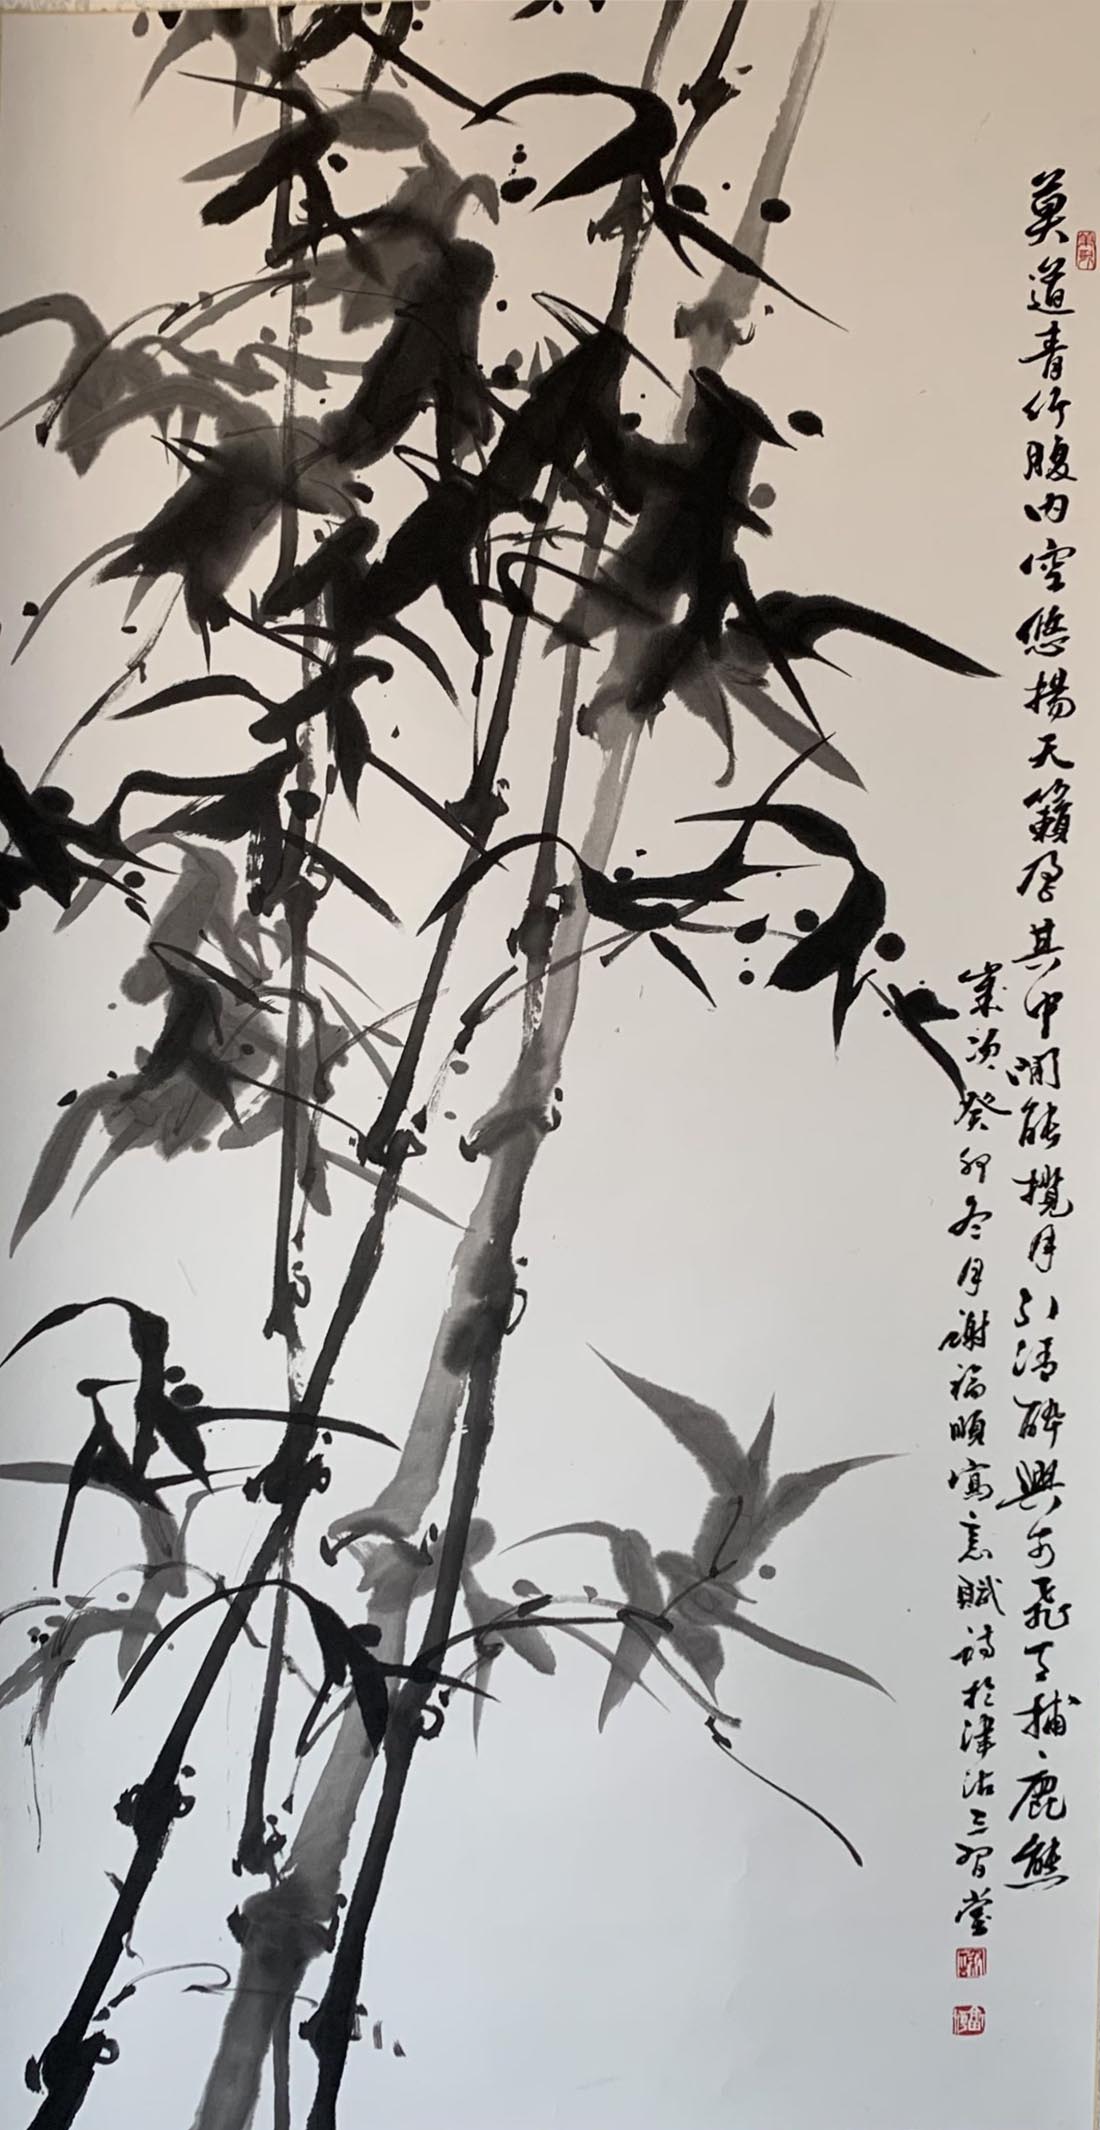 莫道青竹腹内空悠揚天籟孕其中閒能攬月引清醉興可飛天捕鹿熊
歲次癸卯冬月謝福順寫意賦詩於津沽三習堂